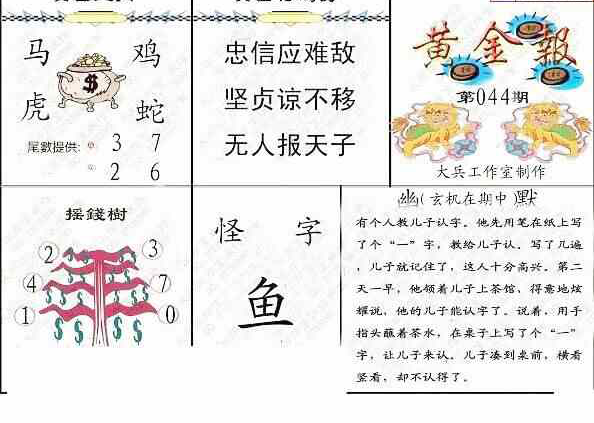 马 鸡
虎 蛇
尾數提供: 3 7
2 6
忠信应难敌
坚贞谅不移
无人报天子
黄金報
第044期
大兵工作室制作
摇錢樹
2 3
4 7
1 0
怪 字
鱼
幽(玄机在期中)默
有个人教儿子认字。他先用笔在纸上写
了个“一”字，教给儿子认。写了几遍
，儿子就记住了，这人十分高兴。第二
天一早，他领着儿子上茶馆，得意地炫
耀说，他的儿子能认字了。说着，用手
指头蘸着茶水，在桌子上写了个“一”
字，让儿子来认。儿子凑到桌前，横看
竖看，却不认得了。